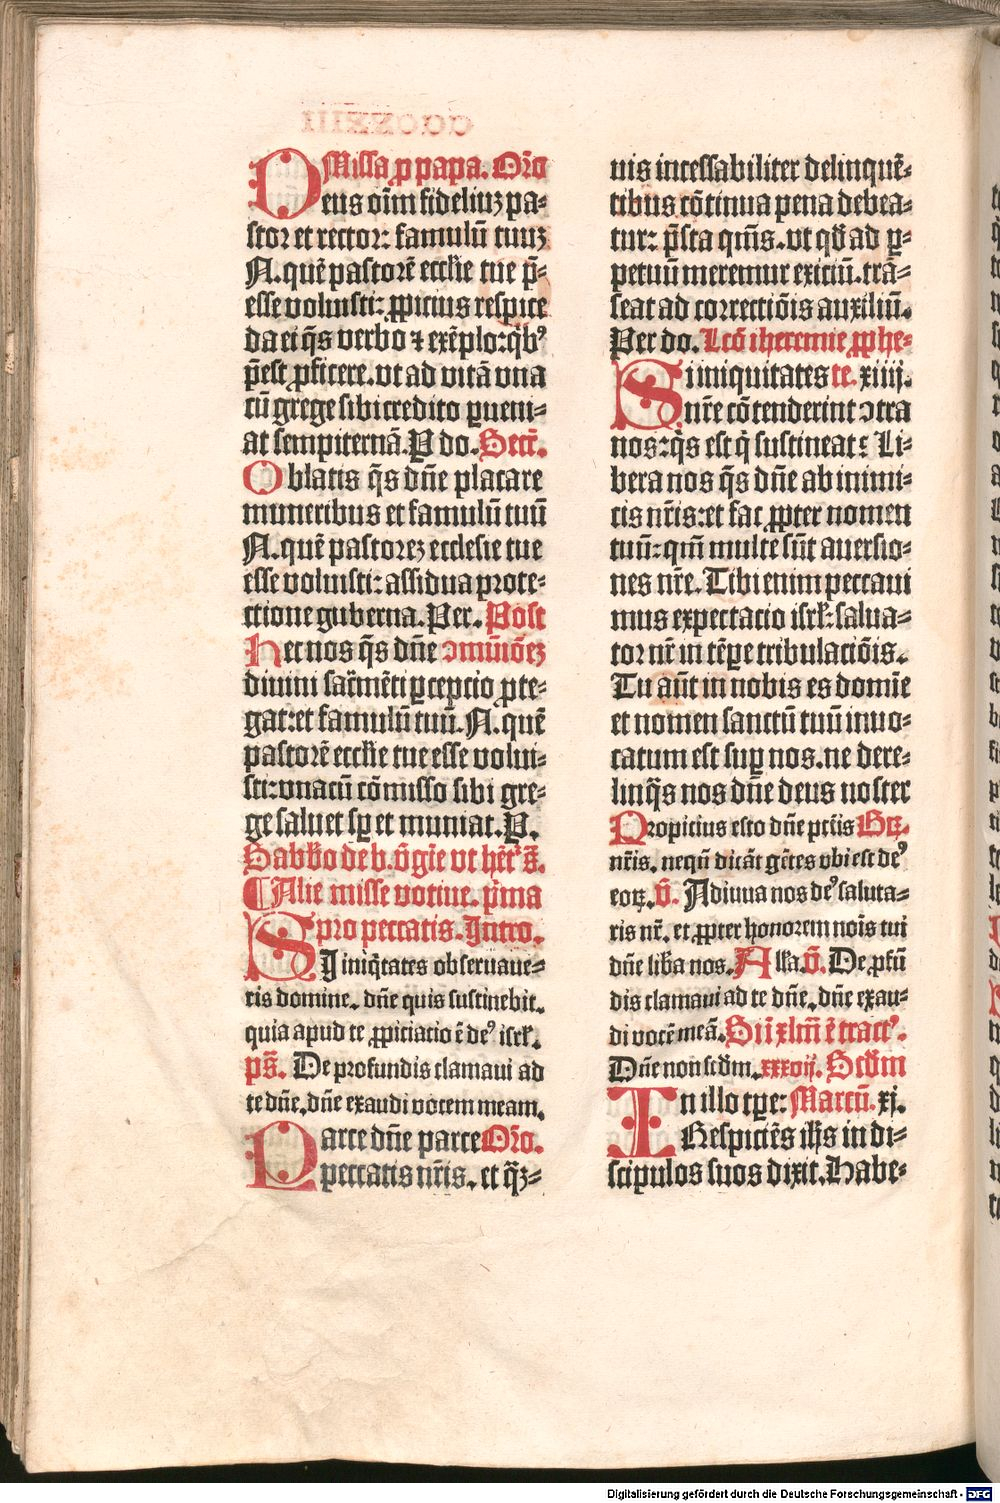 Missa ꝓ papa. Or̄o
Deus oīm fideliuꝫ pa⸗
stor et rector: famulū tuuꝫ
N. quē pastorē ecc̄lie tue p̄⸗
esse voluisti: ꝓpicius respice
da ei q̄s verbo ⁊ exēplo: qbꝰ
p̄est ꝓficere. vt ad vitā vna
cū grege sibi credito ꝑueni⸗
at sempiternā. P do. Secr̄.
Oblatis q̄s dn̄e placare
muneribus et famulū tuū
N. quē pastoreꝫ ecclesie tue
esse voluisti: assidua prote⸗
ctione guberna. Per. Post
Hec nos q̄s dn̄e ↄmūiōeꝫ
diuini sacr̄mēti ꝑcepcio ꝓte⸗
gat: et famulū tuū. N. quē
pastorē ecc̄lie tue esse volui⸗
sti: vnacū cōmisso sibi gre⸗
ge saluet sꝑ et muniat. P.
Sabb̄o de b. v̄gīe vt hētꝰ s̄.
¶ Alie misse votiue. p̄ma
pro peccatis. Intro.
SI iniq̄tates obseruaue⸗
ris domine. dn̄e quis sustinebit.
quia apud te ꝓpiciacio ē deꝰ isrl̄.
ps̄. De profundis clamaui ad
te dn̄e. dn̄e exaudi vocem meam.
Parce dn̄e parce Or̄o.
peccatis nr̄is. et q̄ꝫ⸗
uis incessabiliter delinquē⸗
tibus cōtinua pena debea⸗
tur: p̄sta qm̄s. vt qd̄ ad ꝑ⸗
petuū meremur exiciū. trā⸗
seat ad correctiōis auxiliū.
Per do. Lcō iheremie ꝓphe⸗
Si iniquitates te. xiiij.
nr̄e cōtenderint ↄtra
nos: q̄s est q̄ sustineat: Li⸗
bera nos q̄s dn̄e ab inimi⸗
cis nr̄is: et fac ꝓpter nomen
tuū: qm̄ multe sūt auersio⸗
nes nr̄e. Tibi enim peccaui
mus expectacio isrl̄: salua⸗
tor nr̄ in tēꝑe tribulaciōis.
Tu aūt in nobis es domīe
et nomen sanctū tuū inuo⸗
catum est suꝑ nos. ne dere⸗
linq̄s nos dn̄e deus noster
Propicius esto dn̄e pctīs Gꝛꝫ.
nr̄is. nequn̄ dicāt gētes vbi est deꝰ
eoꝝ. v̄. Adiuua nos deꝰ saluta⸗
ris nr̄. et ꝓpter honorem noīs tui
dn̄e lib̄a nos. All̄a. v̄. De ꝓfū
dis clamaui ad te dn̄e. dn̄e exau⸗
di vocē meā. Si ī xlm̄ ē tractꝰ.
Dn̄e non scd̄m. xxxvij. Scd̄m
In illo tꝑe: Marcū. xj.
Respiciēs ih̄s in di⸗
scipulos suos dixit. Habe⸗
Digitalisierung gefördert durch die Deutsche Forschungsgemeinschaft - DFG